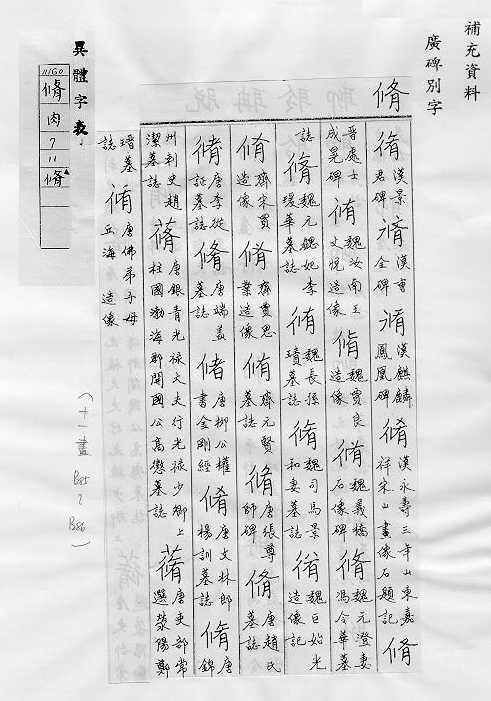 補充資料
廣碑別字
脩
脩 漢景君碑 脩 漢曹全碑 脩 漢麒麟鳳凰碑 脩 漢永壽三年山東嘉祥宋山畫像石題記 脩
晉處士成晃碑 脩 魏汝南王文悅造像 脩 魏賈良造像 脩 魏義橋石像碑 脩 魏元澄妻馮令華墓
誌 脩 魏元魏妃李瑗華墓誌 脩 魏長孫瑱墓誌 脩 魏司馬景和妻墓誌 脩 魏巨始光造像記
脩 齊宋買造像 脩 齊賈思業造像 脩 齊元賢墓誌 脩 唐張尊師碑 脩 唐趙氏墓誌
脩 唐李從証墓誌 脩 唐端墓誌 脩 唐柳公權書金剛經 脩 唐文林郎楊訓墓誌 脩 唐錦
州刺史趙潔墓誌 蓨 唐銀青光祿大夫行光祿少卿上柱國渤海郡開國公高懲墓誌 蓨 唐吏部常選滎陽鄭
瑨墓誌 脩 唐佛弟子母丘海造像
異體字表
11160
脩
肉
7
11
脩
(十一畫 B85 2 B86)